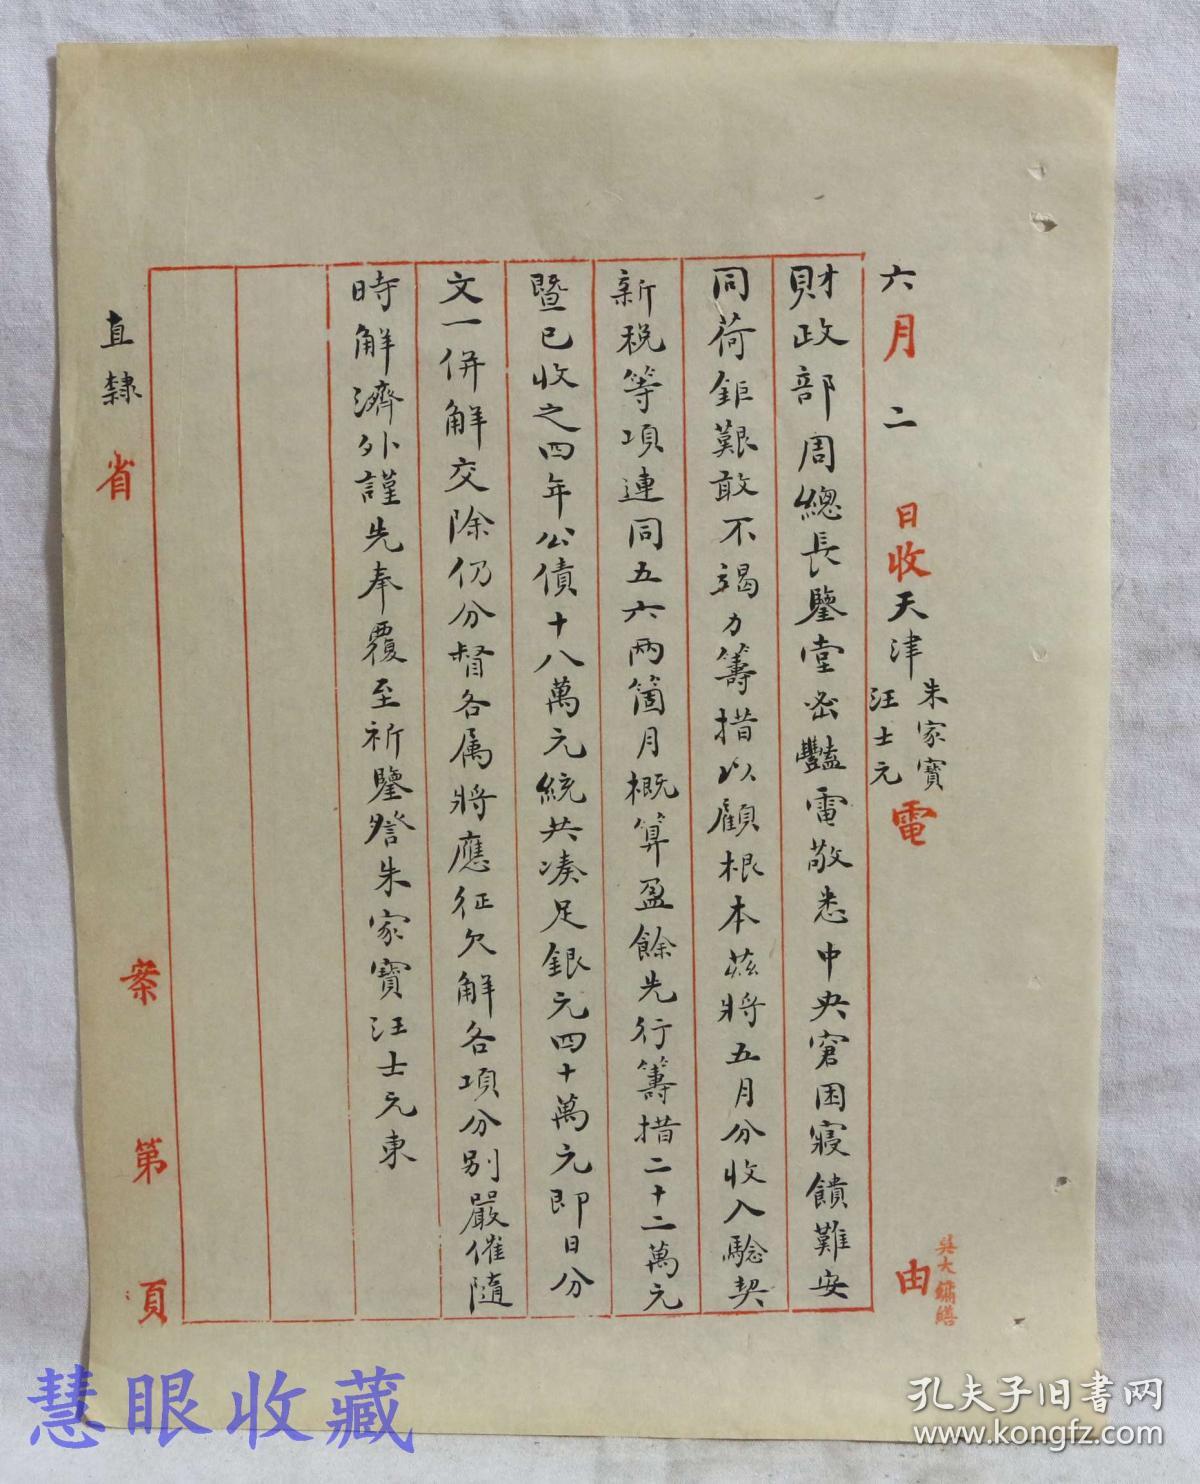 六月二日收天津朱家寶汪士元電 由
吳大鏞繕
財政部周總長鑒堂密豔電敬悉中央窘困寢饋難安
同荷鉅艱敢不竭力籌措以顧根本茲將五月分收入驗契
新税等項連同五六兩箇月概算盈餘先行籌措二十二萬元
暨已收之四年公債十八萬元統共湊足銀元四十萬元即日分
文一併解交除仍分督各属將應征欠解各項分别嚴催隨
時解濟外謹先奉覆至祈鑒詧朱家寶汪士元東
直隸省 案第 頁
慧眼收藏
孔夫子旧书网
www.kongfz.com